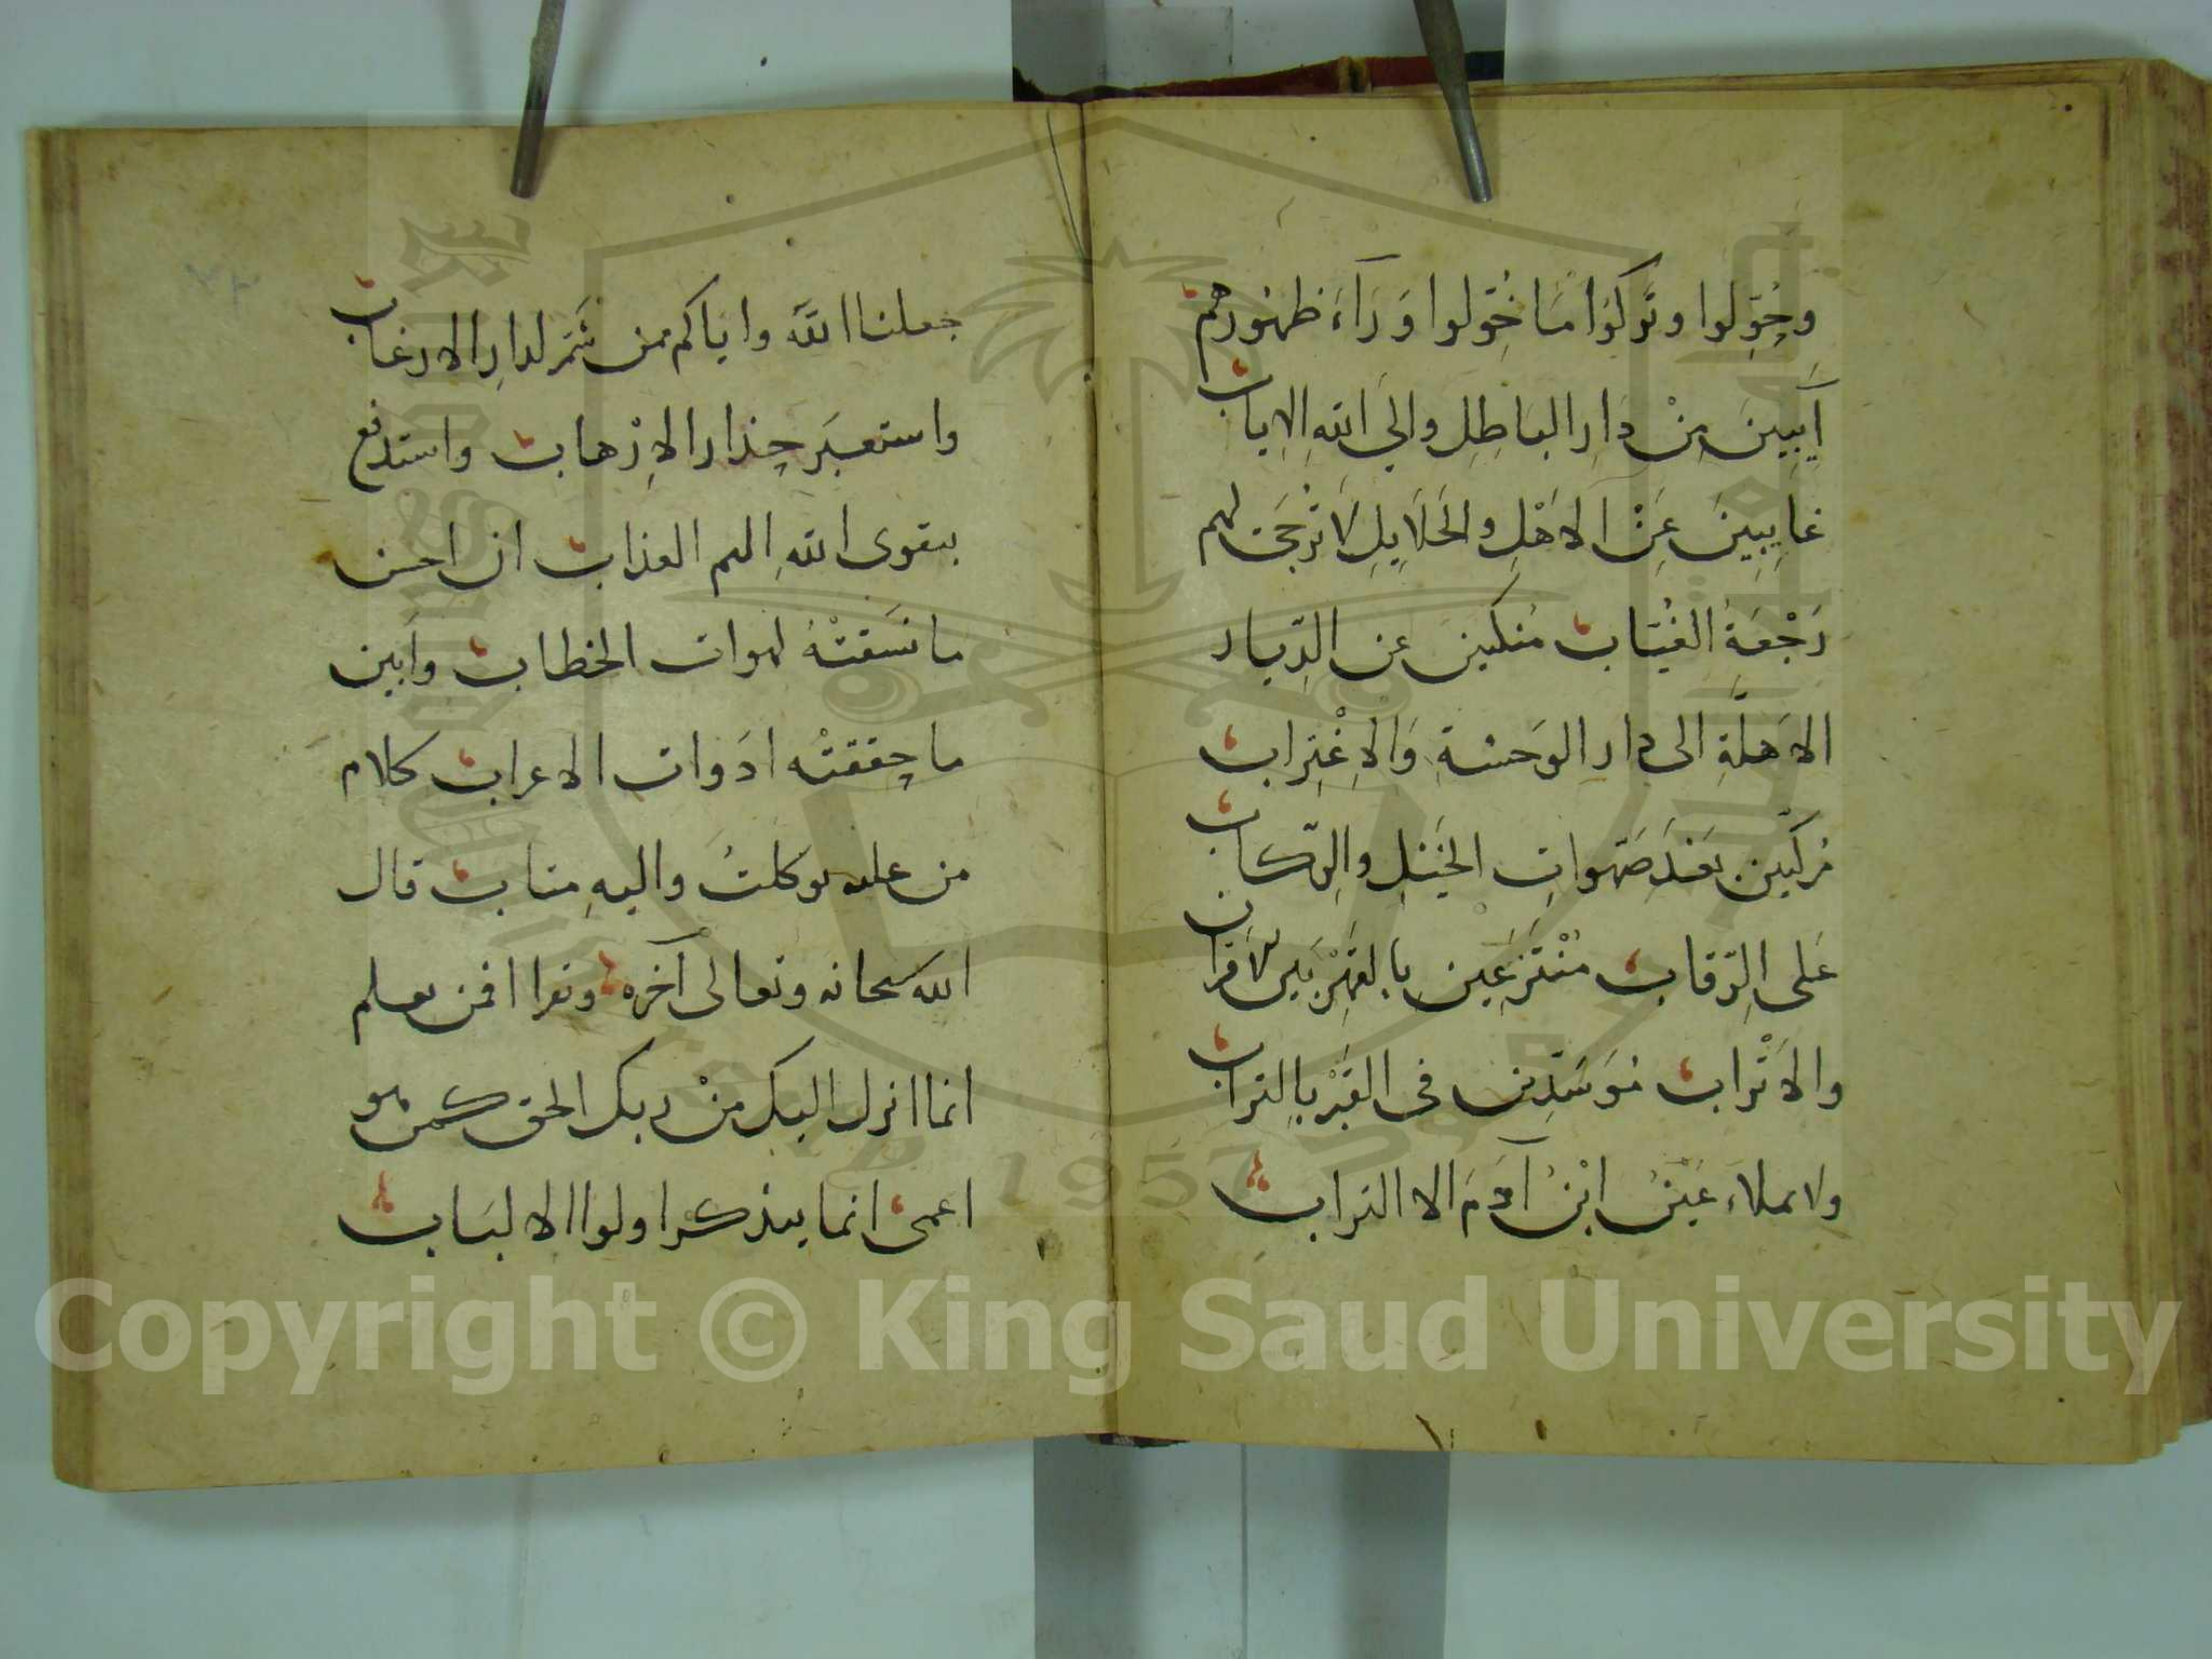 وحُوِّلوا وتَركوُا مَا خُوِّلوا وَرَآءَ ظهُورهم
آيِبِينَ مِنْ دَارِ البَاطِلِ والي اللهِ الاياب
غايِبِينَ عَنْ الاهْلِ والحَلَايِلِ لَا تُرجَى لهم
رَجْعَةُ الغُيّاب مُنَكبين عن الدِّيار
الاهلَةِ الى دار الوَحشةِ وَالاِغْتِراب
مُركَبين بَعْدَ صَهَواتِ الخَيْلِ والرِّكاب
عَلى الرِّقاب مُنْتَزعِين بالقَهْرِ بَين الاقران
والاتْراب مُوَسَّدين في القَبْر بالتراب
ولا يملاءُ عَيْنَ ابْنِ آدَمَ الا التراب
جعلنا الله واياكم ممن شَمَر لدارِ الارغاب
واستعبَر حِذار الاِرْهاب واستدفع
بتقوى اللهِ اليم العذاب ان احسن
ما نسَقتْهُ لهوات الخطاب وأبين
ما حققتْه ادَوات الاعراب كلام
من عليه توكلتُ واليهِ متاب قال
الله سبحانه وتعالى آخره ونقرا افمن يعلم
انما انزل اليك منْ ربك الحق كمن هو
اعمى انما يتذكر اولوا الالبَاب
٢٣
Copyright © King Saud University
1957